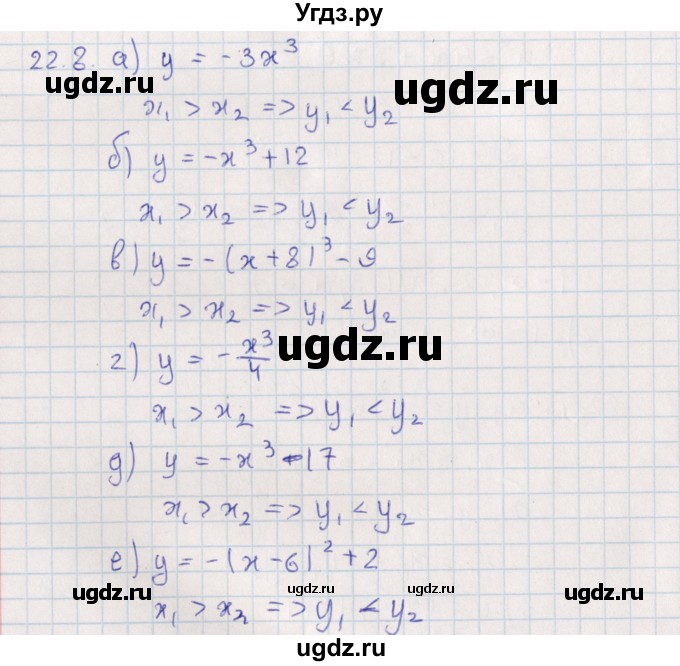 Угдз.ру
22.8. а) y = -3x³
ugdz.ru
ugdz.ru
x₁ > x₂ => y₁ < y₂
б) y = -x³ + 12
x₁ > x₂ => y₁ < y₂
в) y = -(x + 8)³ - 9
x₁ > x₂ => y₁ < y₂
г) y = -x³/4
ugdz.ru
ugdz.ru
x₁ > x₂ => y₁ < y₂
д) y = -x³ - 17
x₁ > x₂ => y₁ < y₂
е) y = -(x - 6)² + 2
ugdz.ru
ugdz.ru
ugdz.ru
x₁ > x₂ => y₁ < y₂
ugdz.ru